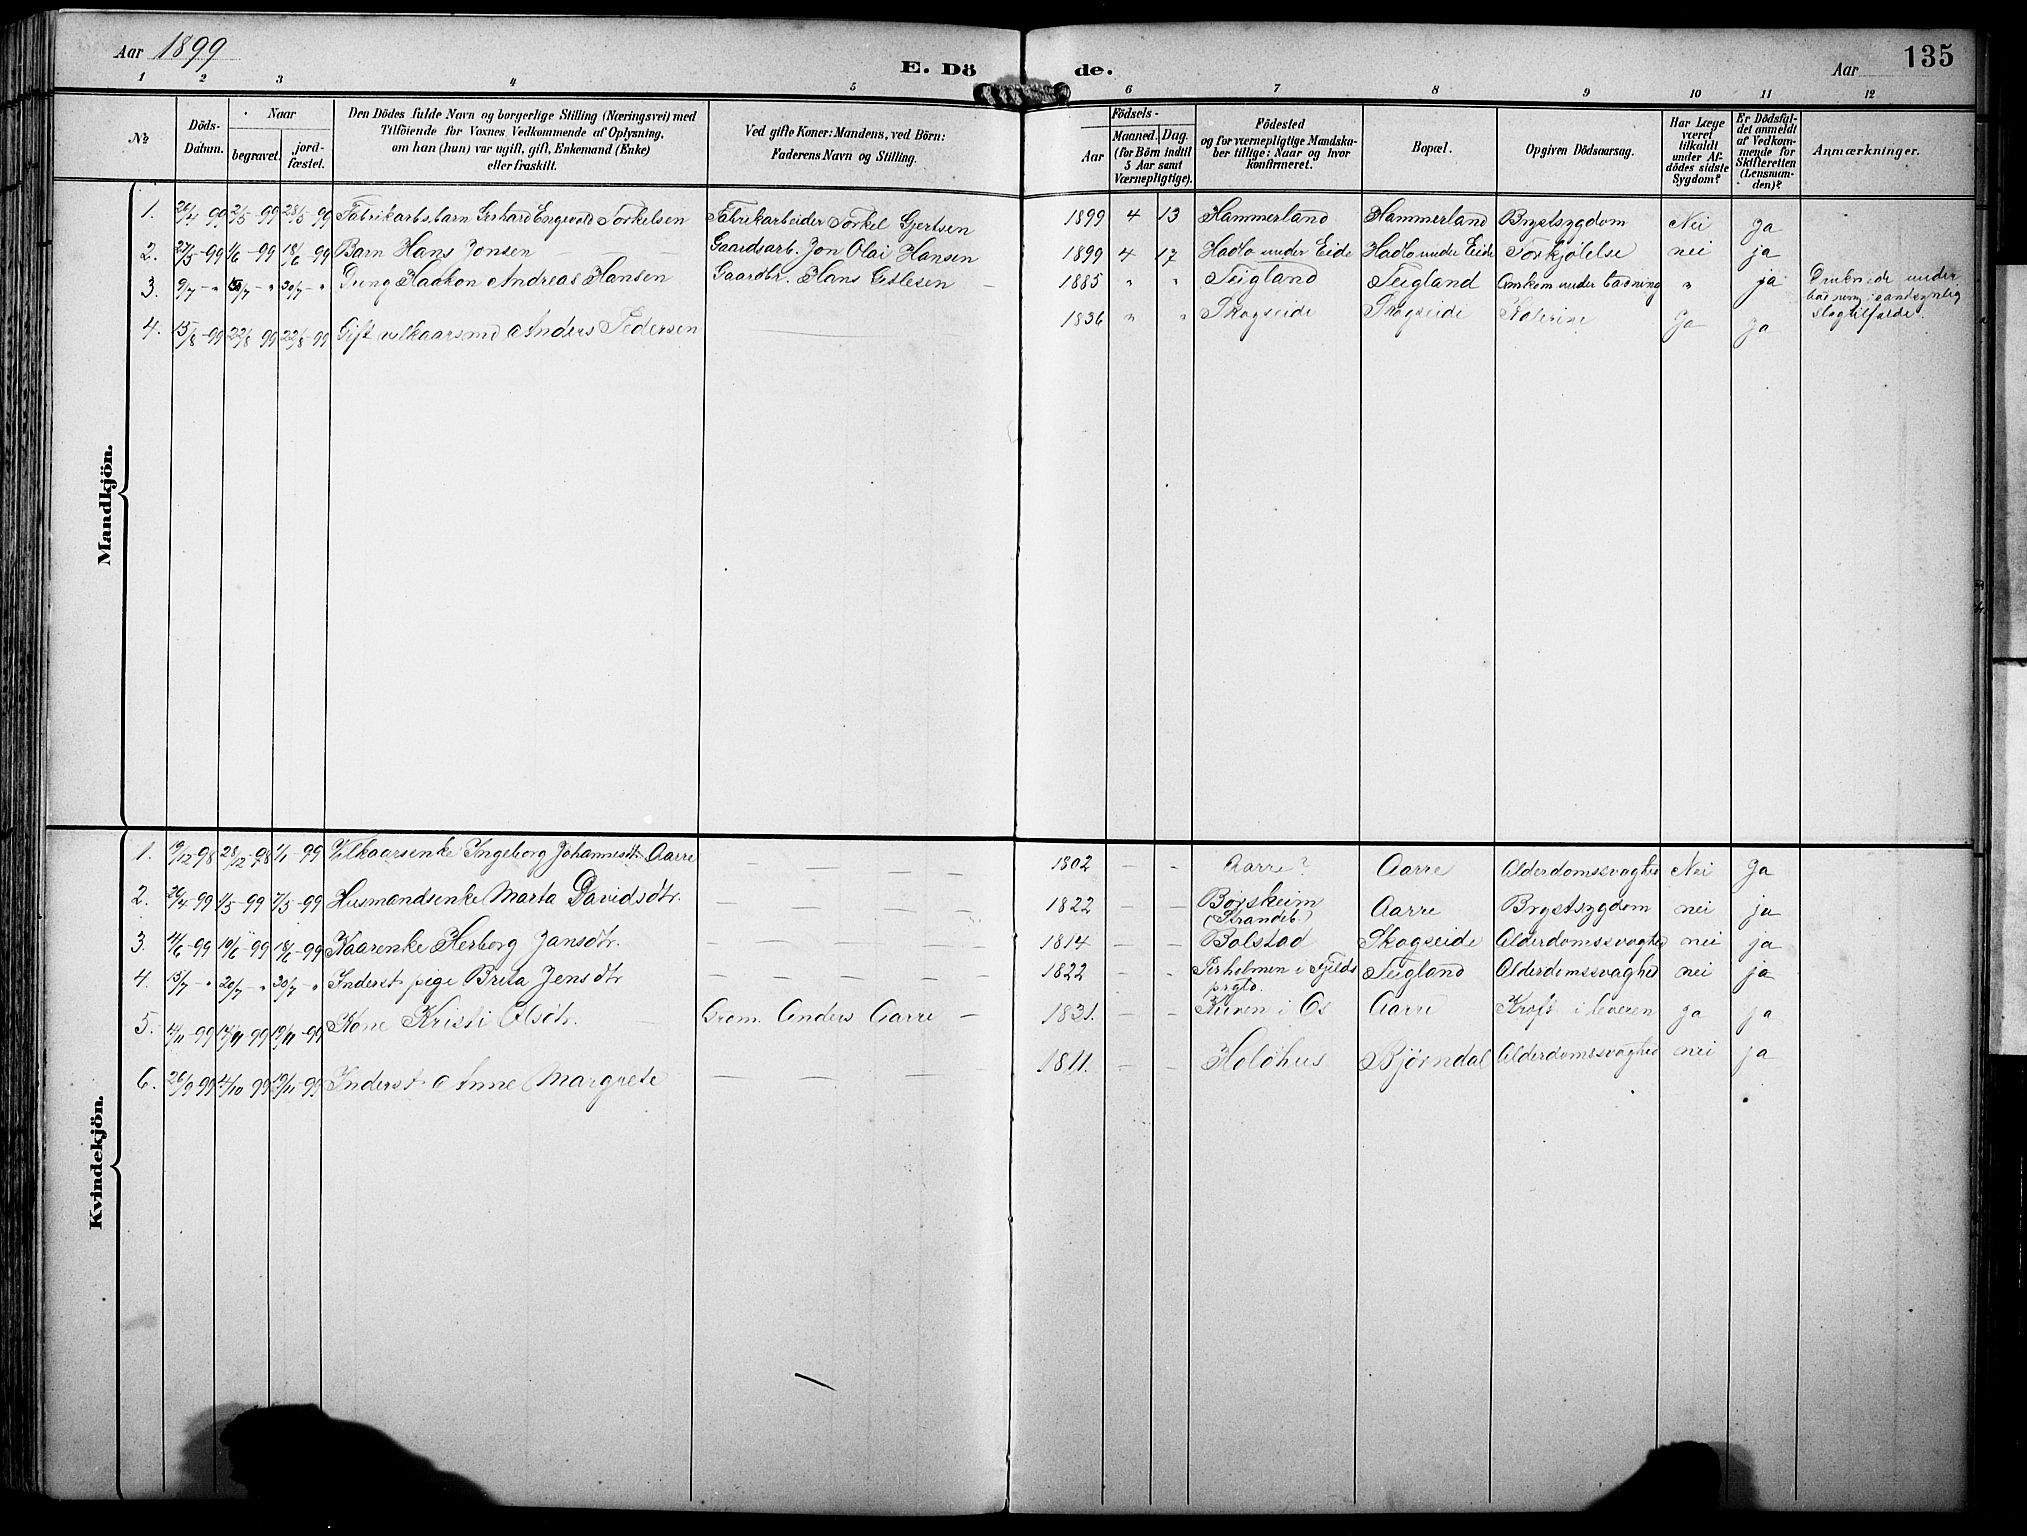 Aar 1899
E. Dö de.
Aar
135
1 2 3 4 5 6 7 8 9 10 11 12
No
Döds-Datum.
Naar
begravet.
jord-fæstet.
Den Dödes fulde Navn og borgerlige Stilling (Næringsvei) med
Tilföiende for Voxnes Vedkommende af Oplysning,
om han (hun) var ugift, gift, Enkemand (Enke)
eller fraskilt.
Ved gifte Koner: Mandens, ved Börn:
Faderens Navn og Stilling.
Födsels-
Aar
Maaned. Dag.
(for Börn indtil
5 Aar samt
Værnepligtige).
Födested
og for værnepligtige Mandska-
ber tillige: Naar og hvor
konfirmeret.
Bopæl.
Opgiven Dödsaarsag.
Har Læge
været
tilkaldt
under Af-
dödes sidste
Sygdom?
Er Dödsfal-
det anmeldt
af Vedkom-
mende for
Skifteretten
(Lensman-
den)?
Anmærkninger.
Mandkjön.
1. 26/4-99 2/5-99 28/5-99 Fabrikarb.barn Gerhard Engevald Torkelsen Fabrikarbeider Torkel Gjertsen 1899 4 13 Hammerland Hammerland Brystsygdom Nei Ja
2. 27/5-99 1/6-99 18/6-99 Barn Hans Jonsen Gaardsarb. Jon Olai Hansen 1899 4 17 Hadlo under Eide Hadlo under Eide Forkjölelse nei ja
3. 9/7 - " /7 - " 30/7 - " Dreng Haakon Andreas Hansen Gaardbr. Hans Gitlesen 1885 " " Teigland Teigland Omkom under badning " ja Druknede under
badning; sandsynlig
slagtilfælde.
4. 15/8-99 22/8-99 22/8-99 Gift vilkaarsmd Anders Pedersen 1836 " " Skogseide Skogseide Kolerine Ja Ja
Kvindekjön.
1. 19/12-98 28/12-98 1/1-99 Vilkaarsenke Ingeborg Johannesdtr Aarre — — — — 1802 — - Aarre? Aarre Alderdomssvaghed Nei Ja
2. 26/4-99 1/5-99 7/5-99 Husmandsenke Marta Davidsdtr. — — — — 1822 — — Börsheim
(Strandeb.) Aarre Brystsygdom nei ja
3. 4/6-99 10/6-99 18/6-99 Kaarenke Herborg Jansdtr. — — — — 1814 — - Bolstad Skogseide Alderdomssvaghed nei ja
4. 15/7 - " 20/7 - " 30/7 - " Inderst pige Brita Jensdtr — — — — 1822 — - i Fjelds
prgld. Teigland Alderdomssvaghed nei ja
5. 12/11-99 17/11-99 19/11-99 Kone Kristi Olsdtr. Grdm. Anders Aarre — 1831. — — Kuven i Os Aarre Kræft i leveren Ja ja
6. 26/9-99 2/10-99 19/11-99 Inderst Anne Margrete — — — 1811. — — Holdhus Björndal Alderdomssvaghed nei ja